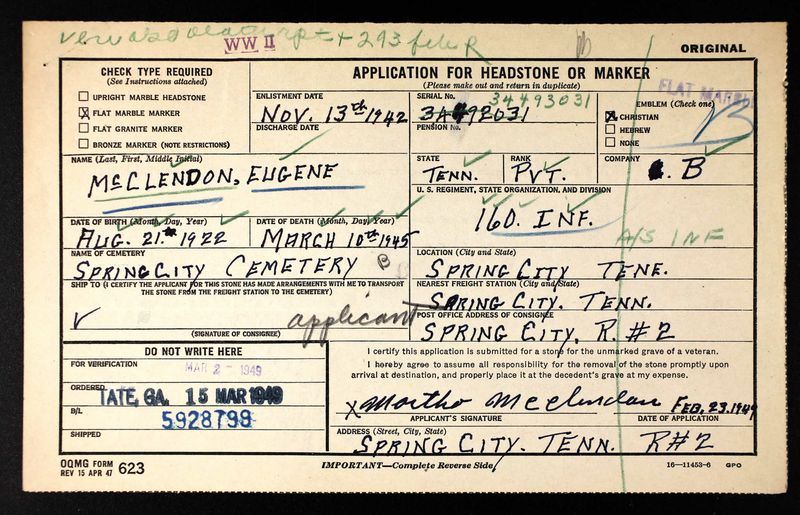 + 293 file R
WW II
ORIGINAL
CHECK TYPE REQUIRED
(See Instructions attached)
UPRIGHT MARBLE HEADSTONE
X FLAT MARBLE MARKER
FLAT GRANITE MARKER
BRONZE MARKER (NOTE RESTRICTIONS)
APPLICATION FOR HEADSTONE OR MARKER
(Please make out and return in duplicate)
ENLISTMENT DATE
NOV. 13th 1942
DISCHARGE DATE
SERIAL No.
34493031
PENSION No.
EMBLEM (Check one)
FLAT MARBLE
X CHRISTIAN
HEBREW
NONE
B
NAME (Last, First, Middle Initial)
McCLENDON, EUGENE
STATE
TENN.
RANK
PVT.
COMPANY
B
U. S. REGIMENT, STATE ORGANIZATION, AND DIVISION
160. INF.
A/S INF
DATE OF BIRTH (Month, Day, Year)
AUG. 21. 1922
DATE OF DEATH (Month, Day, Year)
MARCH 10th 1945
NAME OF CEMETERY
SPRING CITY CEMETERY
LOCATION (City and State)
SPRING CITY TENE.
SHIP TO (I CERTIFY THE APPLICANT FOR THIS STONE HAS MADE ARRANGEMENTS WITH ME TO TRANSPORT
THE STONE FROM THE FREIGHT STATION TO THE CEMETERY)
NEAREST FREIGHT STATION (City and State)
SPRING CITY. TENN.
applicant
(SIGNATURE OF CONSIGNEE)
POST OFFICE ADDRESS OF CONSIGNEE
SPRING CITY, R. #2
DO NOT WRITE HERE
FOR VERIFICATION
MAR 2 - 1949
ORDERED
TATE, GA. 15 MAR 1949
B/L
5928798
SHIPPED
I certify this application is submitted for a stone for the unmarked grave of a veteran.
I hereby agree to assume all responsibility for the removal of the stone promptly upon
arrival at destination, and properly place it at the decedent's grave at my expense.
X Martha McClendon FEB. 23. 1949
APPLICANT'S SIGNATURE
DATE OF APPLICATION
ADDRESS (Street, City, State)
SPRING CITY. TENN. R#2
OQMG FORM
REV 15 APR 47 623
IMPORTANT—Complete Reverse Side
16—11453-6 GPO